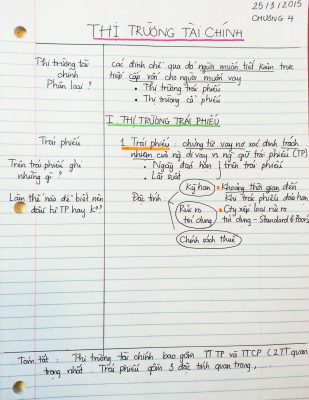 25/3/2015
CHƯƠNG 4
THỊ TRƯỜNG TÀI CHÍNH
Thị trường tài chính
Phân loại?
các định chế qua đó người muốn tiết kiệm trực
tiếp cấp vốn cho người muốn vay
• Thị trường trái phiếu
• Thị trường cổ phiếu
I. THỊ TRƯỜNG TRÁI PHIẾU
Trái phiếu
1. Trái phiếu: chứng từ vay nợ xác định trách
nhiệm của ng đi vay vs ng giữ trái phiếu (TP)
Trên trái phiếu ghi
những gì?
• Ngày đáo hạn
• Lãi suất
trên trái phiếu
Làm thế nào để biết nên
đầu tư TP hay K°?
Đặc tính:
Kỳ hạn
• Khoảng thời gian đến
khi trái phiếu đáo hạn
Rủi ro
tín dụng
• Cty xếp loại rủi ro
tín dụng - Standard & Poor's
Chính sách thuế
Tóm tắt: Thị trường tài chính bao gồm TTTP và TTCP (2 TT quan
trọng nhất. Trái phiếu gồm 3 đặc tính quan trọng,....